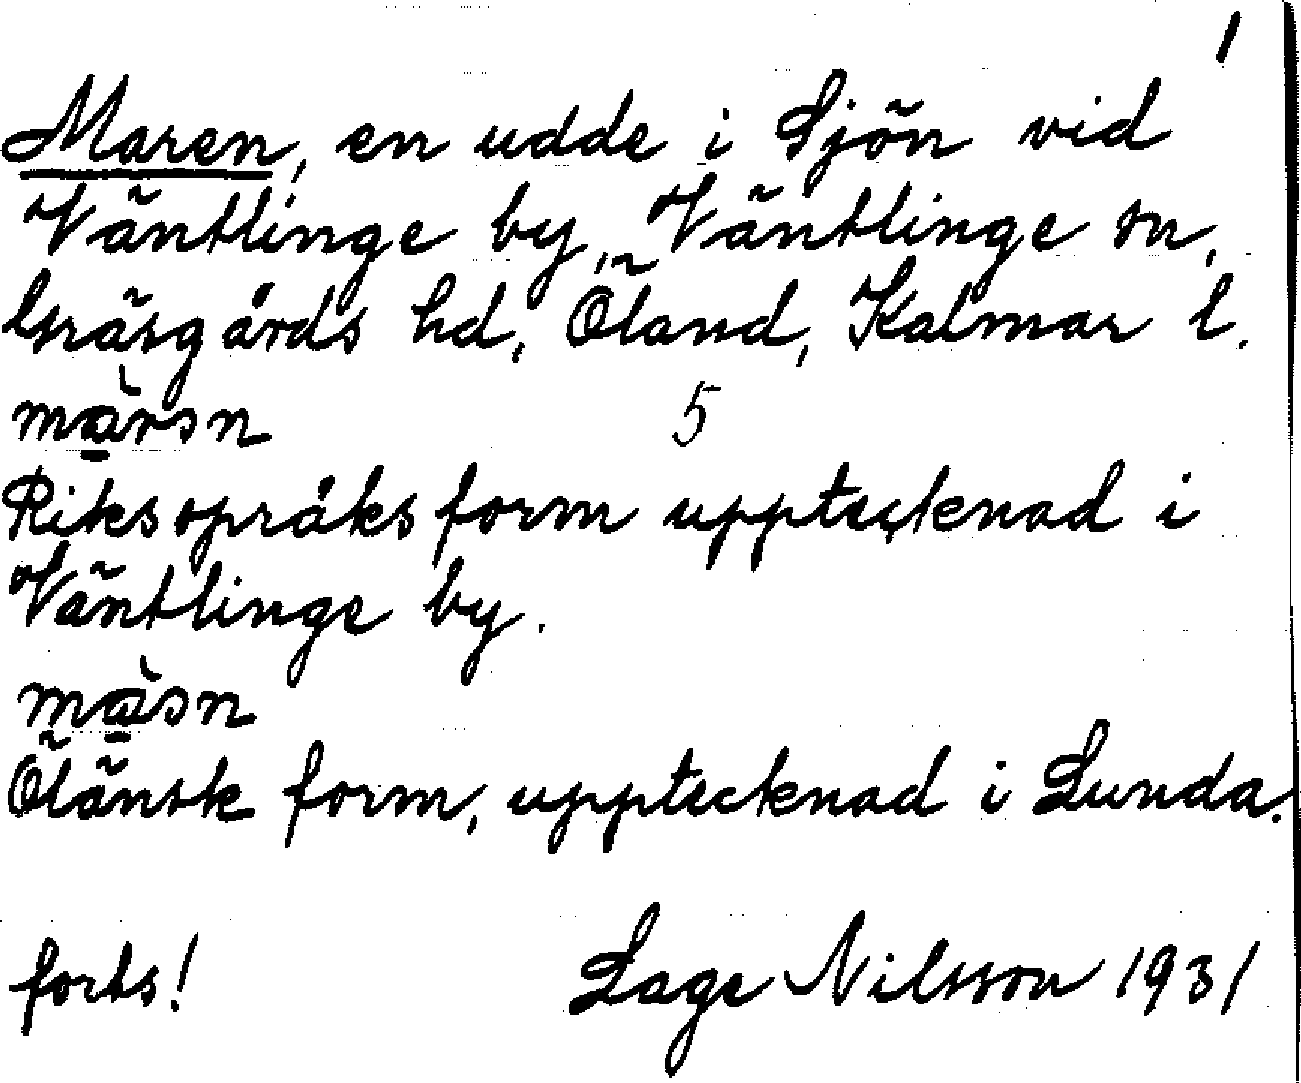 1
Maren, en udde i Sjön vid
Väntlinge by, Väntlinge sn,
Gräsgårds hd, Öland, Kalmar l.
5
Riksspråksform upptecknad i
Väntlinge by.
Öländsk form, upptecknad i Lunda.
forts! Lage Nilsson 1931